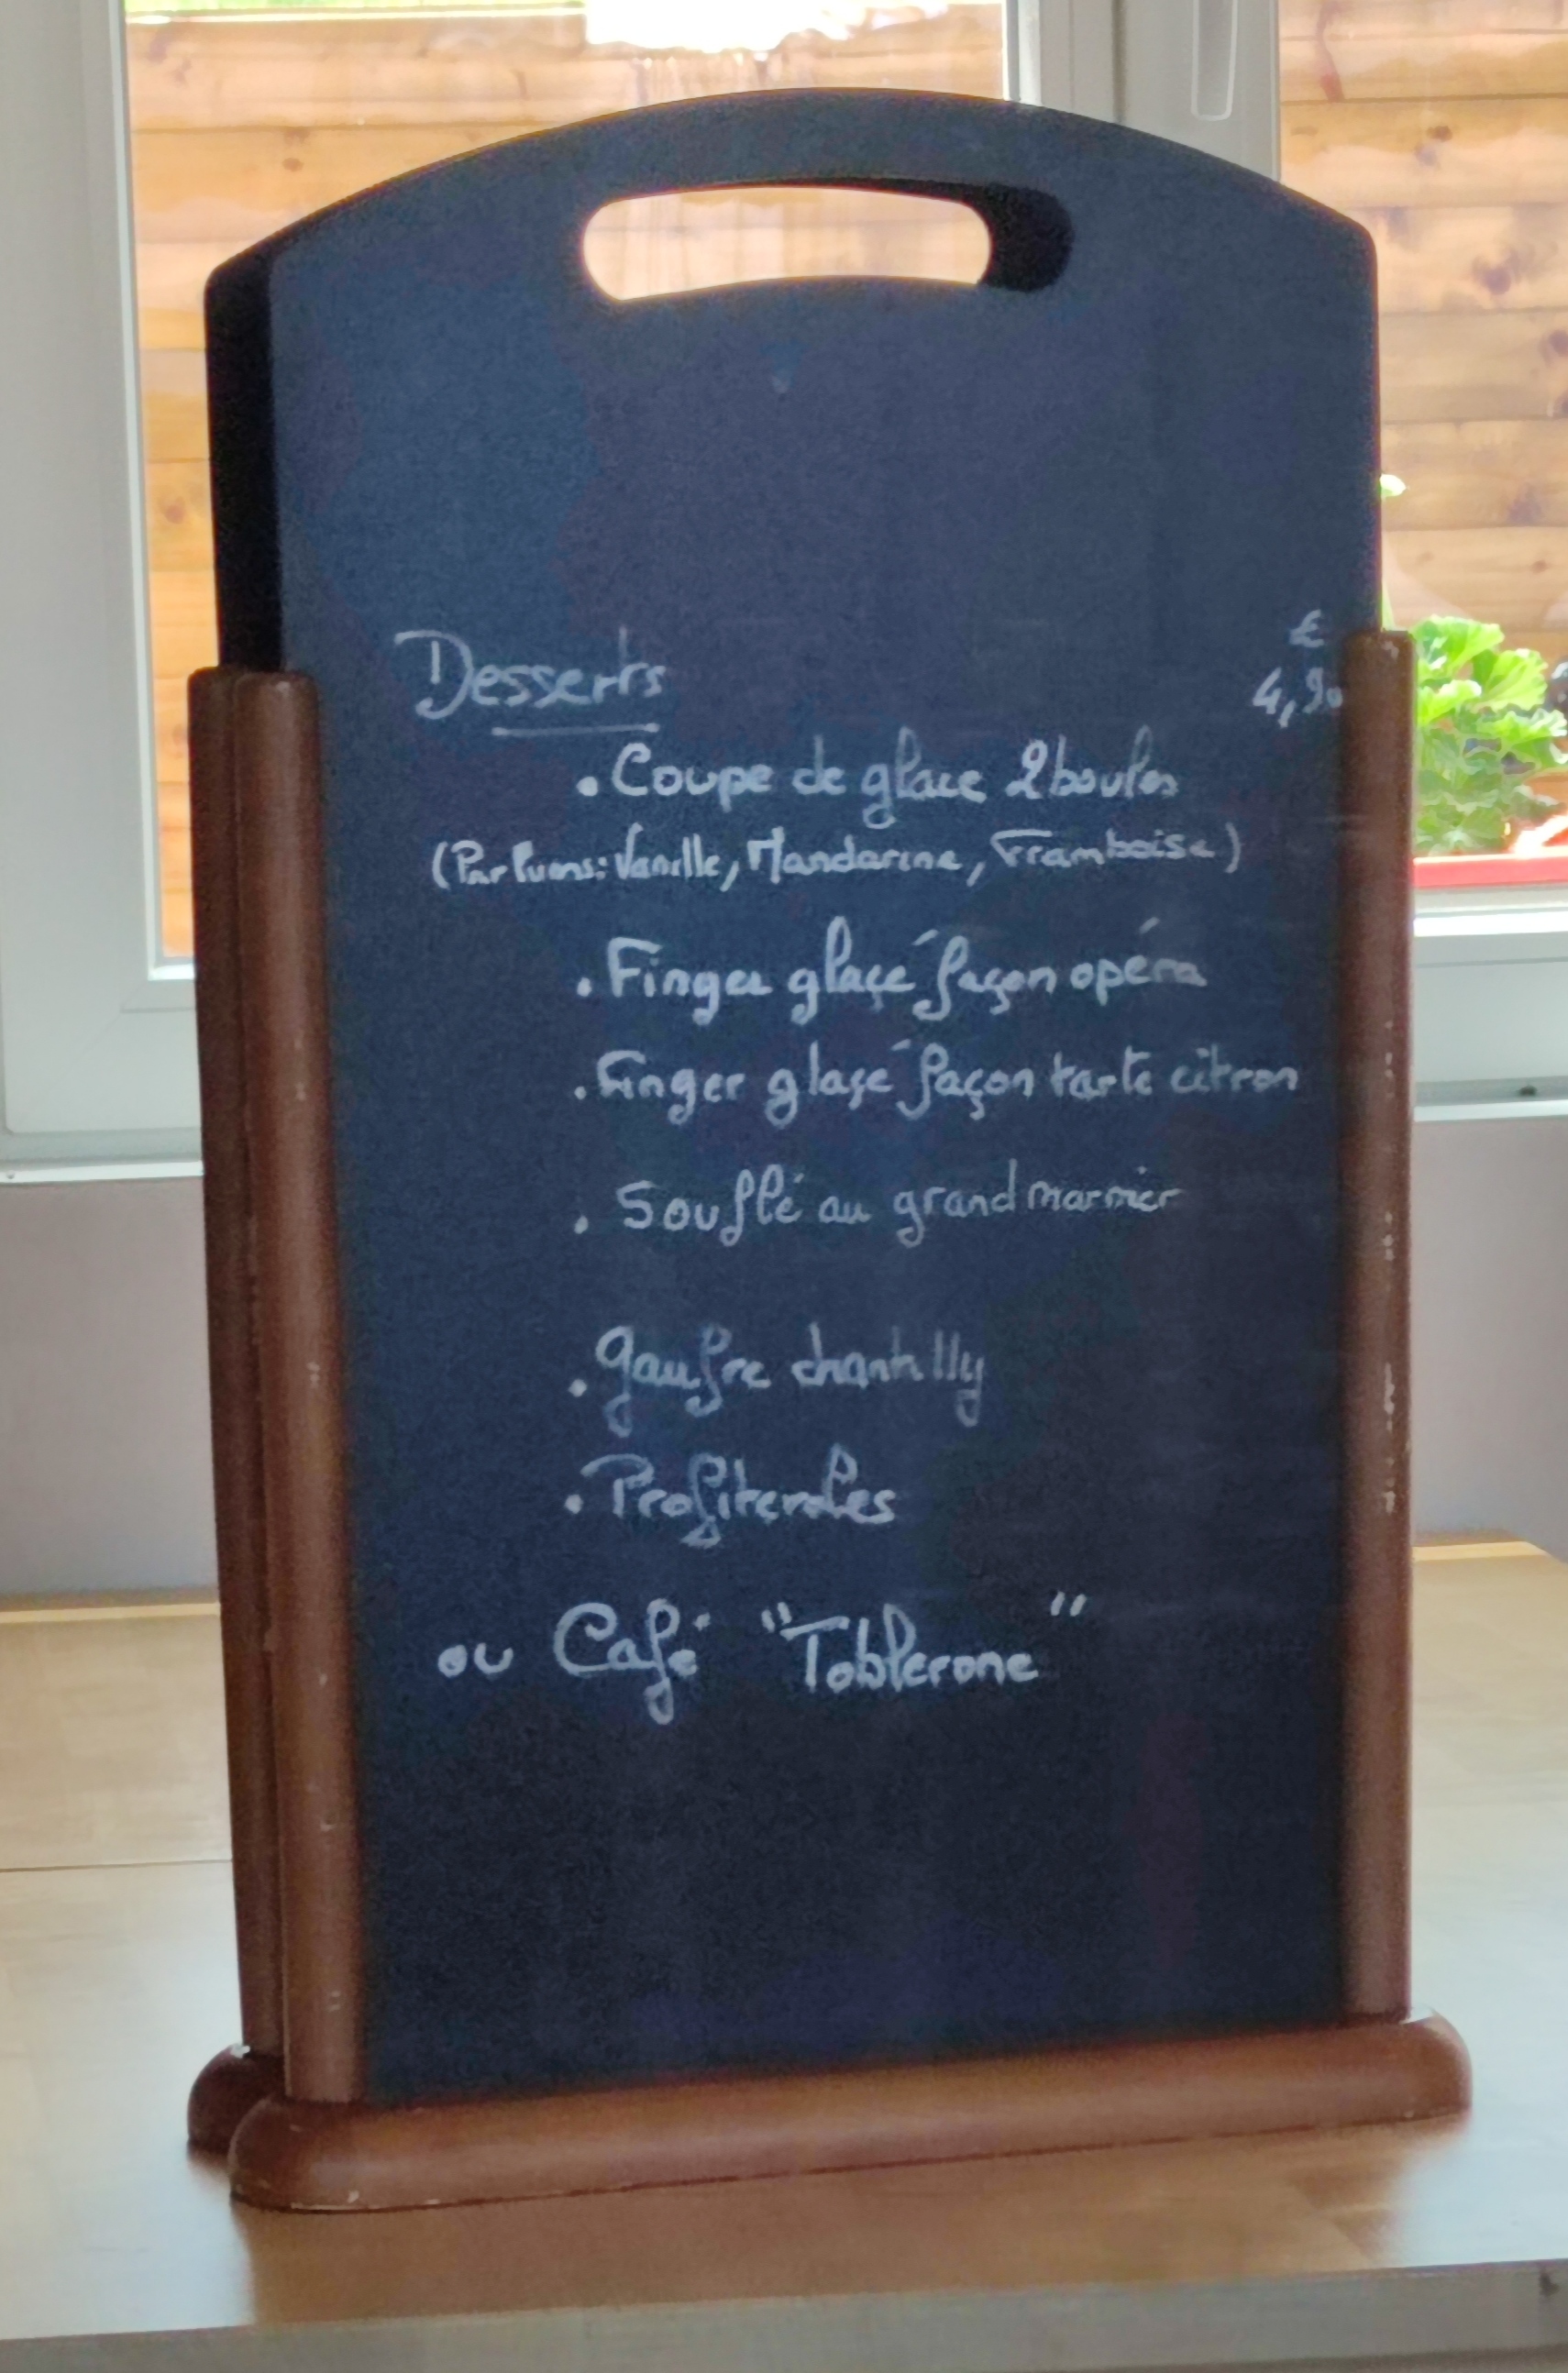 €
Desserts 4,90
. Coupe de glace 2 boules
(Parfums: Vanille, Mandarine, Framboise)
. Finger glaçé façon opéra
. Finger glaçé façon tarte citron
. Souflé au grand marnier
. gaufre chantilly
. Profiteroles
ou Café "Toblerone"